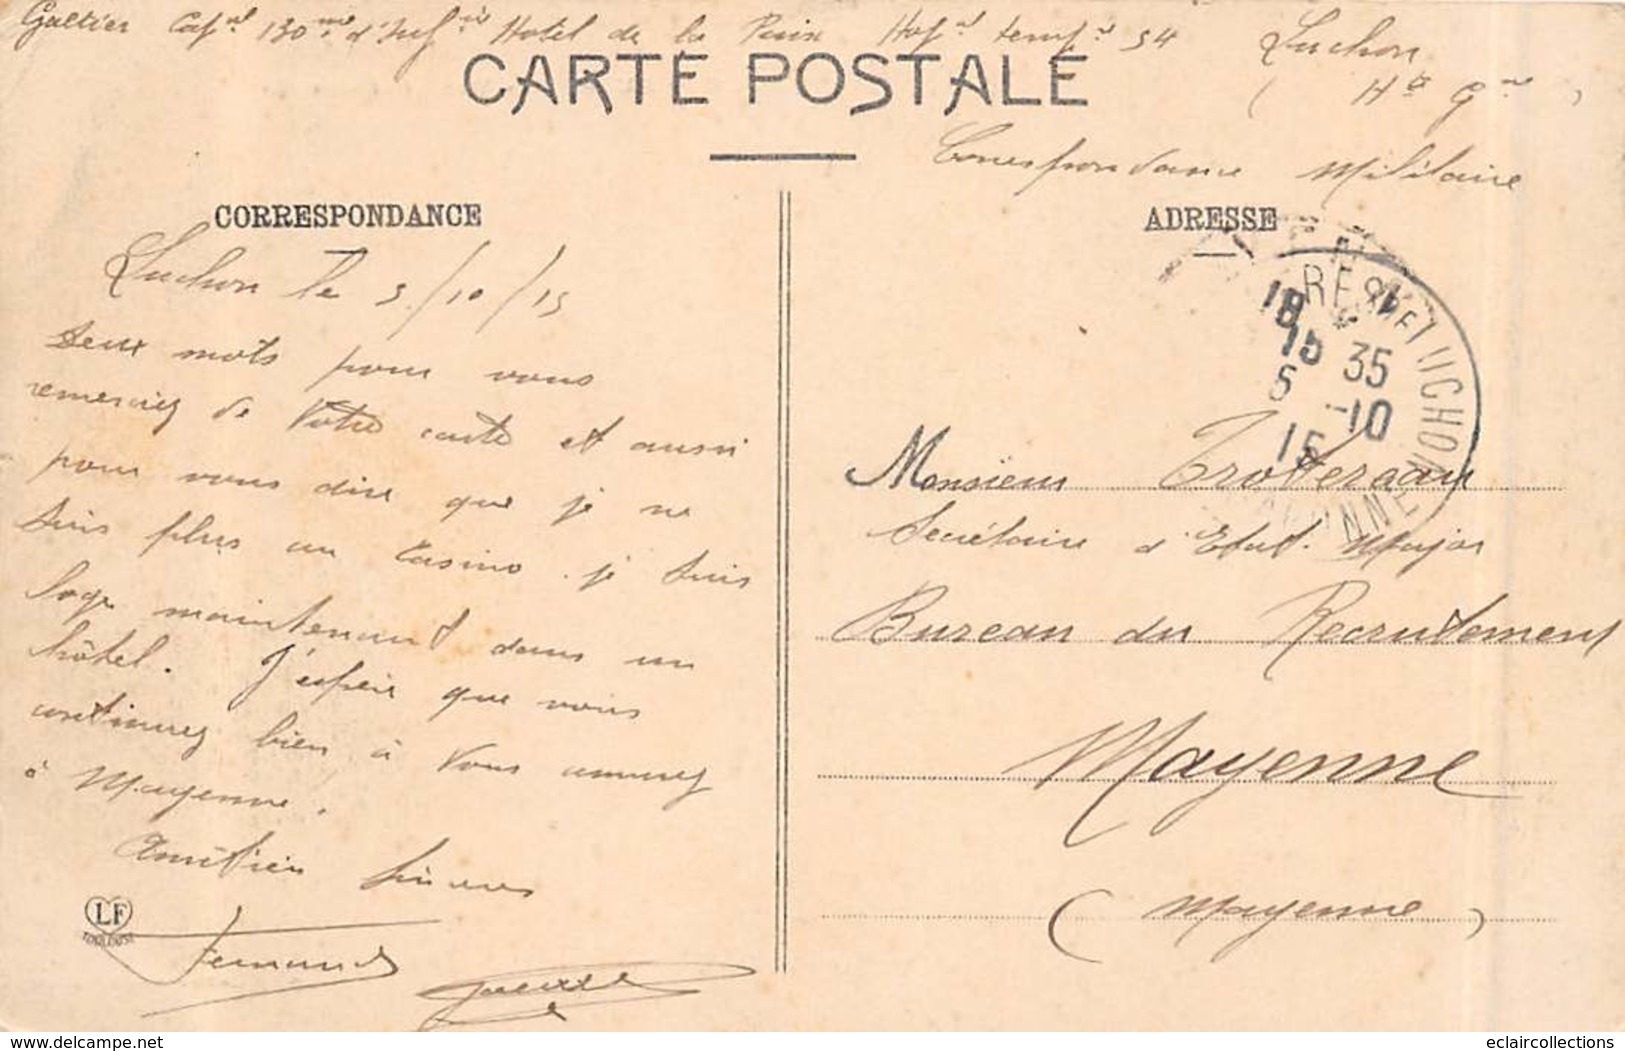 Galtier Cap^al 130^me d'Inf^ie Hotel de la Paix Hop^al temp^re 54 Luchon
( H^te G^ne )
CARTE POSTALE
Correspondance Militaire
CORRESPONDANCE
Luchon le 3/10/15
deux mots pour vous
remerciez de Votre carte et aussi
pour vous dire que je ne
suis plus au Casino. je suis
loge maintenant dans un
hôtel. J'espère que vous
continuez bien à Vous amusez
à Mayenne.
Amitiés sincères
Fernand
LF
TOULOUSE
ADRESSE
LUCHON
18 35
15
5 -10
15
GARONNE
Monsieur Trotereau
Secrétaire d'Etat-Major
Bureau du Recrutement
Mayenne
( Mayenne )
eclaircollections
www.delcampe.net